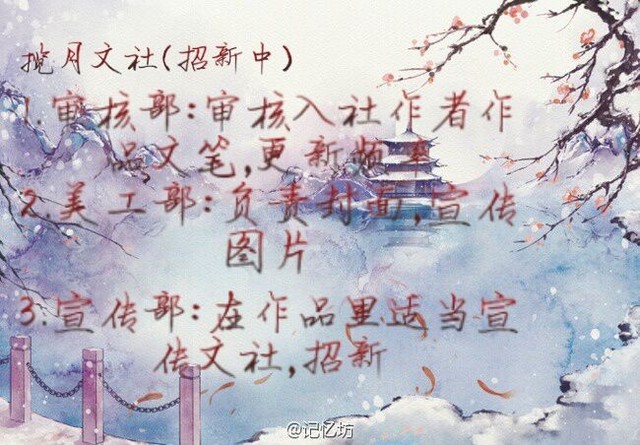 揽月文社(招新中)
1.审核部:审核入社作者作
品文笔,更新频率
2.美工部:负责封面,宣传
图片
3.宣传部:在作品里适当宣
传文社,招新
@记忆坊